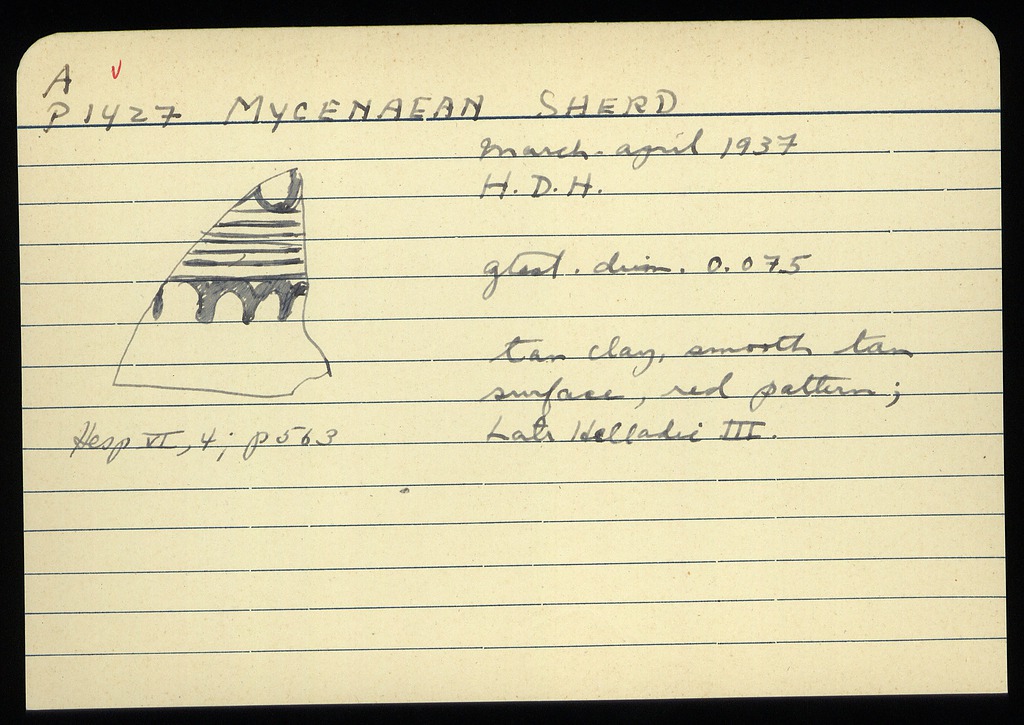 A v
P 1427 MYCENAEAN SHERD
March-april 1937
H. D. H.
gtest. dim. 0.075
tan clay, smooth tan
surface, red pattern;
Late Helladic III.
Hesp VI, 4; p 563